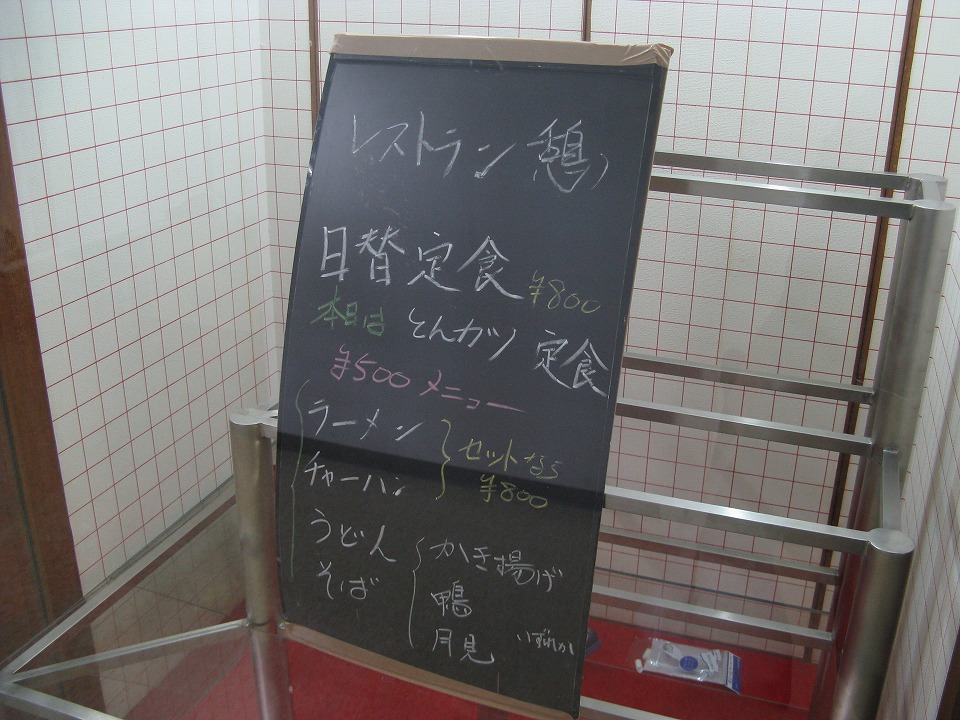 レストラン 憩
日替定食 ¥800
本日は とんカツ 定食
¥500 メニュー
ラーメン
チャーハン
セットなら
¥800
うどん
そば
かき揚げ
鴨
月見 いずれか